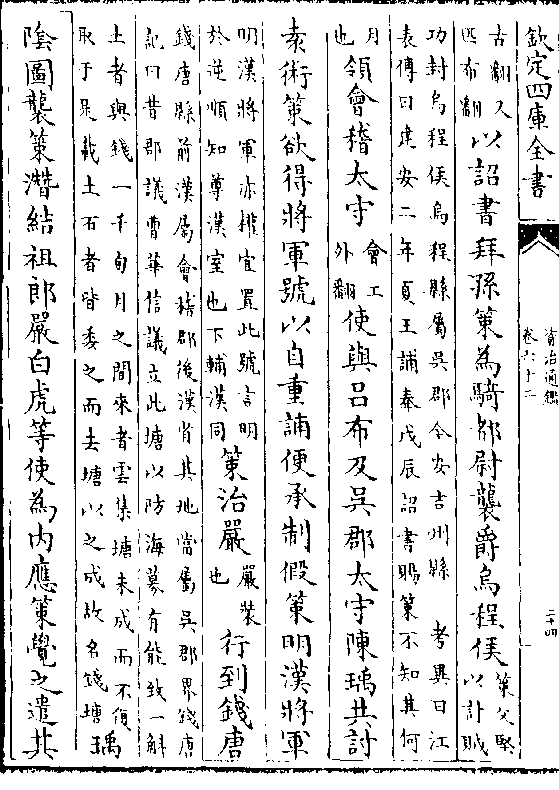 欽定四庫全書
資治通鑑
卷六十二
二十四
古翻又
匹布翻
以詔書拜孫策為騎都尉襲爵烏程侯
策父堅
以討賊
功封烏程侯烏程縣屬吳郡今安吉州縣 考異曰江
表傳曰建安二年夏王誧奉戊辰詔書賜策不知其何
月
也
領會稽太守
會工
外翻
使與吕布及吳郡太守陳瑀共討
袁術策欲得將軍號以自重誧便承制假策明漢將軍
明漢將軍亦權宜置此號言明
於逆順知尊漢室也下輔漢同
策治嚴
嚴裝
也
行到錢唐
錢唐縣前漢屬會稽郡後漢省其地當屬吳郡界錢唐
記曰昔郡議曹華信議立此塘以防海募有能致一斛
土者與錢一千旬月之間來者雲集塘未成而不復
取于是載土石者皆委之而去塘以之成故名錢塘
瑀
隂圖襲策潛結祖郎嚴白虎等使為内應策覺之遣其